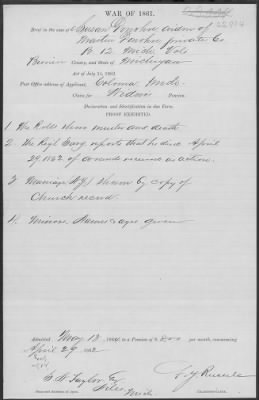 WAR OF 1861.
Brief in the case of Susan Donohue widow of
Martin Donohue private Co
B. 12 Mich Vols
County, and State of Michigan
Act of July 14, 1862.
Post Office address of Applicant, Coloma Mich
Claim for Widow Pension.
Declaration and Identification in due Form.
PROOF EXHIBITED:
1 The Rolls show muster and death
2 The Regl Surg reports that he died April
29 1862 of wounds received in action.
3 Marriage shown by copy of
Church record.
4 Minor names & ages given
Admitted May 13, to a Pension of $8.00 per month, commencing
April 29 1862
Taylor
Niles Mich